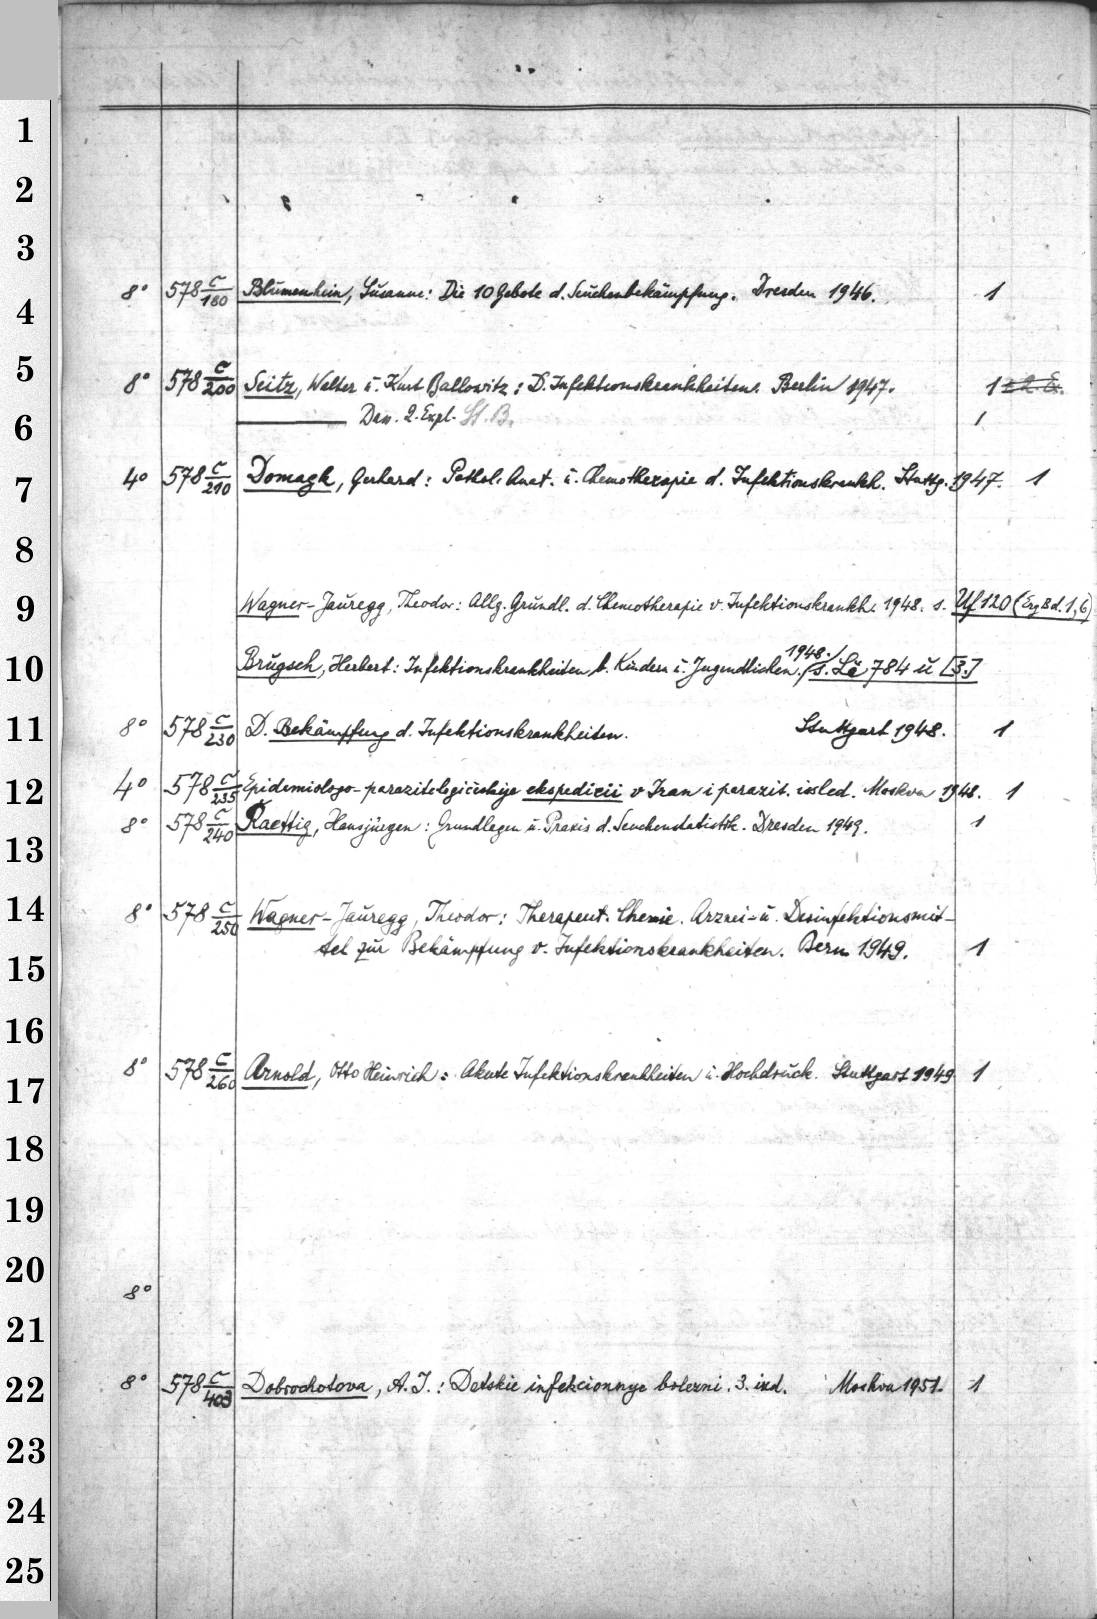 1
2
3
8° 578 c/180 Blumenhein, Susanne: Die 10 Gebote d. Seuchenbekämpfung. Dresden 1946. 1
4
5
8° 578 c/200 Seitz, Walter u. Kurt Ballowitz: D. Infektionskrankheiten. Berlin 1947. 1 + 2. Ex.
Dass. 2. Expl. St. B. 1
6
4° 578 c/210 Domagk, Gerhard: Pathol. Anat. u. Chemotherapie d. Infektionskrankh. Stuttg. 1947. 1
7
8
9 Wagner-Jauregg, Theodor: Allg. Grundl. d. Chemotherapie v. Infektionskrankh. 1948. s. Uf 120 (Erg Bd. 1,6)
1948.
10 Brugsch, Herbert: Infektionskrankheiten b. Kindern u. Jugendlichen. / s. Lä 784 u [3.]
11 8° 578 c/230 D. Bekämpfung d. Infektionskrankheiten. Stuttgart 1948. 1
12 4° 578 c/235 Epidemiologo-parazitologičeskije ekspedicii v Iran i parazit. issled. Moskva 1948. 1
8° 578 c/240 Raettig, Hansjürgen: Grundlagen u. Praxis d. Seuchenstatistik. Dresden 1949. 1
13
14 8° 578 c/250 Wagner-Jauregg, Theodor: Therapeut. Chemie. Arznei- u. Desinfektionsmit-
tel zur Bekämpfung v. Infektionskrankheiten. Bern 1949. 1
15
16
8° 578 c/260 Arnold, Otto Heinrich: Akute Infektionskrankheiten u. Hochdruck. Stuttgart 1949 1
17
18
19
20
8°
21
22 8° 578 c/403 Dobrochotova, A. I.: Detskie infekcionnye bolezni. 3. izd. Moskva 1951. 1
23
24
25